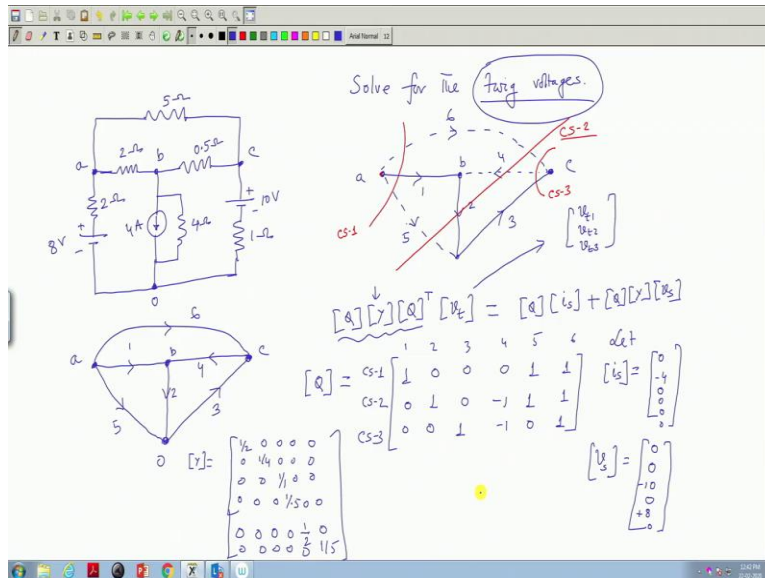 Arial Normal 12
Solve for the twig voltages.
5Ω
2Ω
0.5Ω
a
b
c
2Ω
8V
+
-
4A
4Ω
+
-
10V
1Ω
0
6
cs-2
a
b
4
c
1
2
cs-1
5
3
cs-3
[Vt1
Vt2
Vt3]
[Q][Y][Q]ᵀ[Vt] = [Q][is] + [Q][Y][Vs]
6
a
1
b
4
c
2
5
3
0
1 2 3 4 5 6
[Q] =
cs-1 1 0 0 0 1 1
cs-2 0 1 0 -1 1 1
cs-3 0 0 1 -1 0 1
Let
[is] =
0
-4
0
0
0
0
[Vs] =
0
0
-10
0
+8
0
[Y] =
1/2 0 0 0 0
0 1/4 0 0 0
0 0 1/1 0 0
0 0 0 1/.5 0 0
0 0 0 0 1/2 0
0 0 0 0 0 1/5
12:42 PM